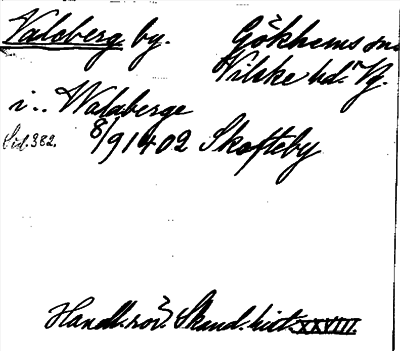 Valsberg by. Gökhems sn
Vilske hd. Vg.
i.. Walsberge
Sid. 382. 8/9 1402 Skofteby
Handl. rör. Skand. hist. XXVIII.